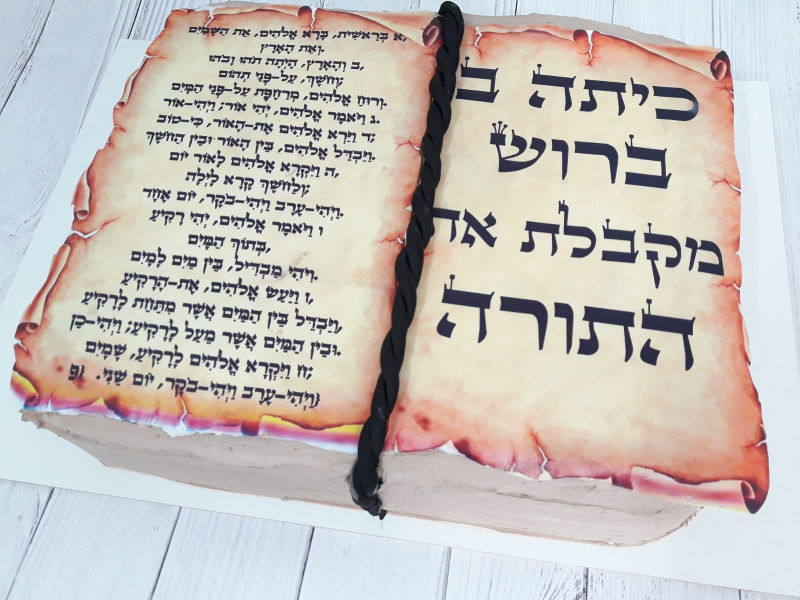 כיתה ב
ברוש
מקבלת את
התורה
א בְּרֵאשִׁית, בָּרָא אֱלֹהִים, אֵת הַשָּׁמַיִם,
וְאֵת הָאָרֶץ.
ב וְהָאָרֶץ, הָיְתָה תֹהוּ וָבֹהוּ,
וְחֹשֶׁךְ, עַל-פְּנֵי תְהוֹם;
וְרוּחַ אֱלֹהִים, מְרַחֶפֶת עַל-פְּנֵי הַמָּיִם.
ג וַיֹּאמֶר אֱלֹהִים, יְהִי אוֹר; וַיְהִי-אוֹר.
ד וַיַּרְא אֱלֹהִים אֶת-הָאוֹר, כִּי-טוֹב;
וַיַּבְדֵּל אֱלֹהִים, בֵּין הָאוֹר וּבֵין הַחֹשֶׁךְ.
ה וַיִּקְרָא אֱלֹהִים לָאוֹר יוֹם,
וְלַחֹשֶׁךְ קָרָא לָיְלָה;
וַיְהִי-עֶרֶב וַיְהִי-בֹקֶר, יוֹם אֶחָד.
ו וַיֹּאמֶר אֱלֹהִים, יְהִי רָקִיעַ
בְּתוֹךְ הַמָּיִם,
וִיהִי מַבְדִּיל, בֵּין מַיִם לָמָיִם.
ז וַיַּעַשׂ אֱלֹהִים, אֶת-הָרָקִיעַ,
וַיַּבְדֵּל בֵּין הַמַּיִם אֲשֶׁר מִתַּחַת לָרָקִיעַ,
וּבֵין הַמַּיִם אֲשֶׁר מֵעַל לָרָקִיעַ; וַיְהִי-כֵן.
ח וַיִּקְרָא אֱלֹהִים לָרָקִיעַ, שָׁמָיִם;
וַיְהִי-עֶרֶב וַיְהִי-בֹקֶר, יוֹם שֵׁנִי. {פ}